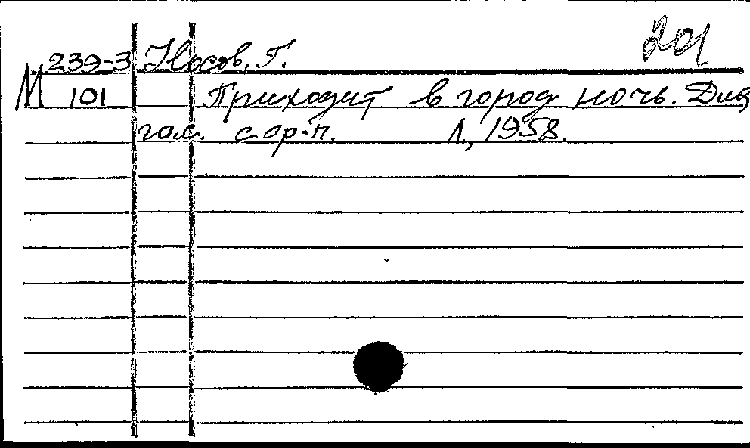 201
239-3 Носов, Г.
М 101 Приходит в город ночь. Для
гол. с ф-п. Л., 1958.